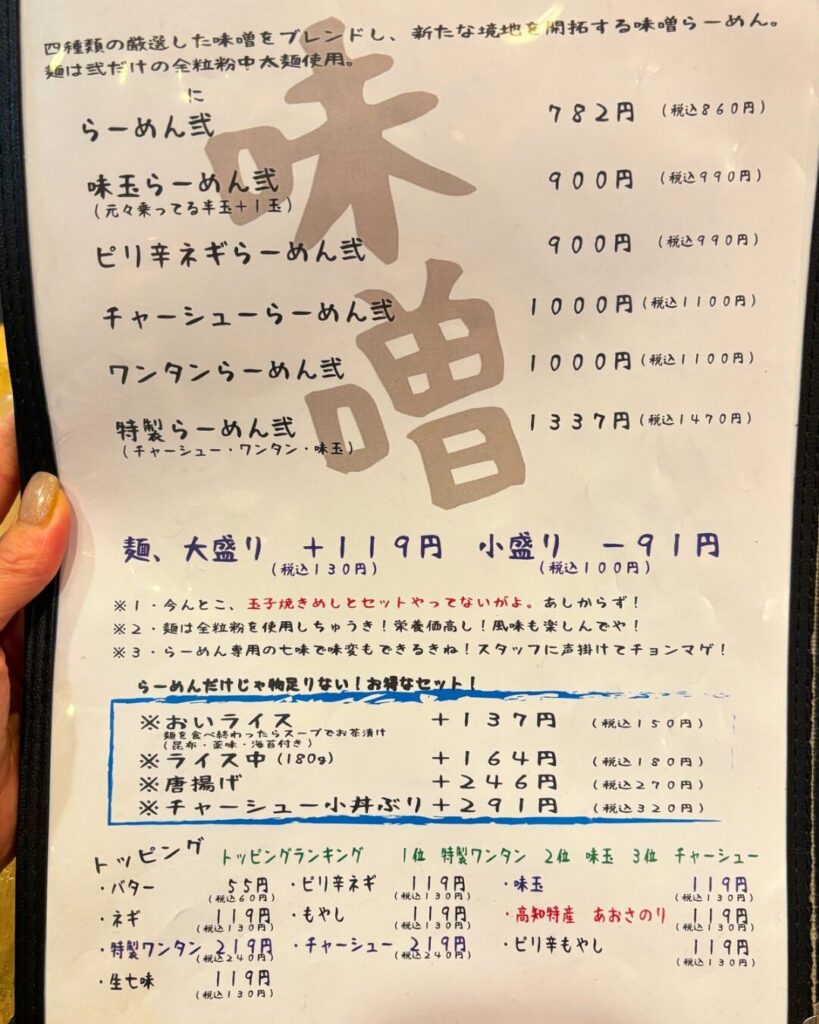 四種類の厳選した味噌をブレンドし、新たな境地を開拓する味噌らーめん。
麺は弐だけの全粒粉中太麺使用。
味噌
に
らーめん弐 782円 (税込860円)
味玉らーめん弐 900円 (税込990円)
(元々乗ってる半玉+1玉)
ピリ辛ネギらーめん弐 900円 (税込990円)
チャーシューらーめん弐 1000円 (税込1100円)
ワンタンらーめん弐 1000円 (税込1100円)
特製らーめん弐 1337円 (税込1470円)
(チャーシュー・ワンタン・味玉)
麺、大盛り +119円 小盛り -91円
(税込130円) (税込100円)
※1・今んとこ、玉子焼きめしとセットやってないがよ。あしからず!
※2・麺は全粒粉を使用しちゅうき!栄養価高し!風味も楽しんでや!
※3・らーめん専用の七味で味変もできるきね!スタッフに声掛けてチョンマゲ!
らーめんだけじゃ物足りない!お得なセット!
※おいライス +137円 (税込150円)
麺を食べ終わったらスープでお茶漬け
(昆布・薬味・海苔付き)
※ライス中(180g) +164円 (税込180円)
※唐揚げ +246円 (税込270円)
※チャーシュー小丼ぶり +291円 (税込320円)
トッピング トッピングランキング 1位 特製ワンタン 2位 味玉 3位 チャーシュー
・バター 55円 ・ピリ辛ネギ 119円 ・味玉 119円
(税込60円) (税込130円) (税込130円)
・ネギ 119円 ・もやし 119円 ・高知特産 あおさのり 119円
(税込130円) (税込130円) (税込130円)
・特製ワンタン 219円 ・チャーシュー 219円 ・ピリ辛もやし 119円
(税込240円) (税込240円) (税込130円)
・生七味 119円
(税込130円)